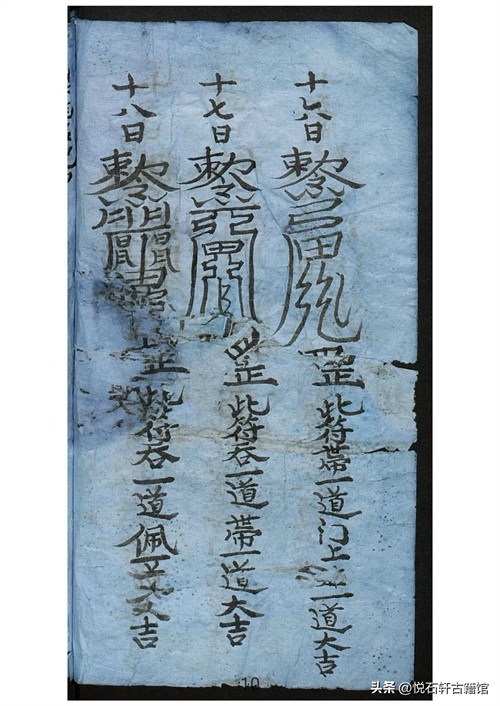 十六日 敕令 罡 此符帶一道门上一道大吉
十七日 敕令 罡 此符吞一道帶一道大吉
十八日 敕令 罡 此符吞一道佩一吉
10
头条 @悦石轩古籍馆